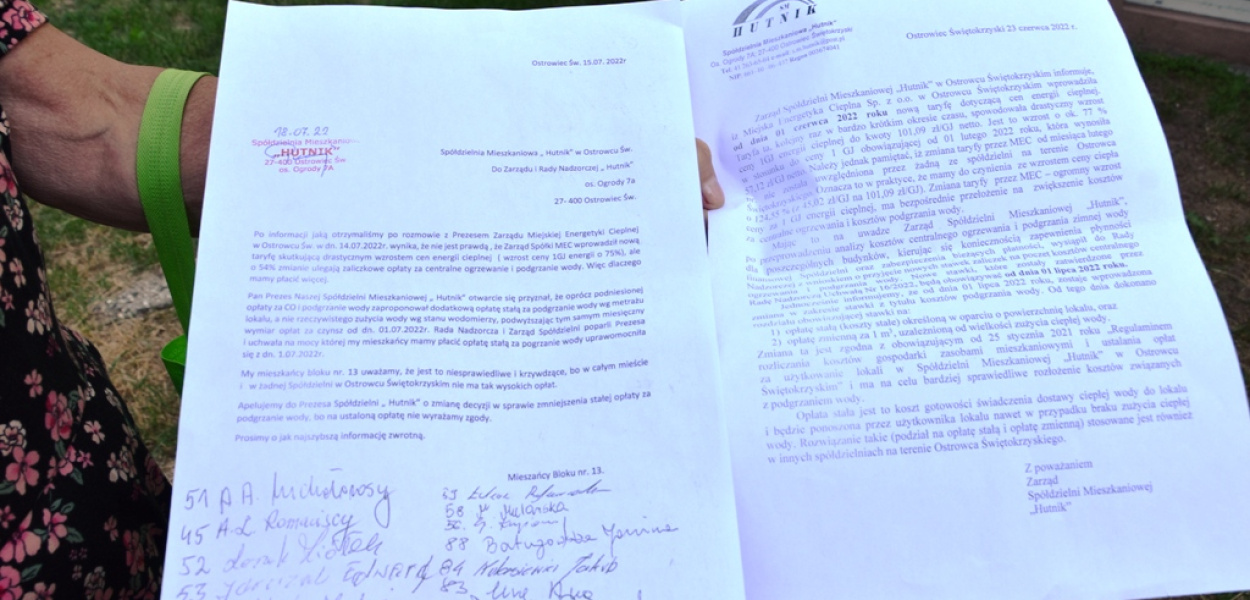 Ostrowiec Św. 15.07. 2022r
18.07.22
Spółdzielnia Mieszkanio
„HUTNIK"
27-400 Ostrowiec Św.
os. Ogrody 7A
Spółdzielnia Mieszkaniowa „ Hutnik" w Ostrowcu Św.
Do Zarządu i Rady Nadzorczej „ Hutnik"
os. Ogrody 7a
27- 400 Ostrowiec Św.
Po informacji jaką otrzymaliśmy po rozmowie z Prezesem Zarządu Miejskiej Energetyki Cieplnej
w Ostrowcu Św. w dn. 14.07.2022r. wynika, że nie jest prawdą , że Zarząd Spółki MEC wprowadził nową
taryfę skutkującą drastycznym wzrostem cen energii cieplnej ( wzrost ceny 1GJ energii o 75%), ale
o 54% zmianie ulegają zaliczkowe opłaty za centralne ogrzewanie i podgrzanie wody. Więc dlaczego
mamy płacić więcej.
Pan Prezes Naszej Spółdzielni Mieszkaniowej „ Hutnik" otwarcie się przyznał, że oprócz podniesionej
opłaty za CO i podgrzanie wody zaproponował dodatkową opłatę stałą za podgrzanie wody wg metrażu
lokalu, a nie rzeczywistego zużycia wody wg stanu wodomierzy, podwyższając tym samym miesięczny
wymiar opłat za czynsz od dn. 01.07.2022r. Rada Nadzorcza i Zarząd Spółdzielni poparli Prezesa
i uchwała na mocy której my mieszkańcy mamy płacić opłatę stałą za pogrzanie wody uprawomocniła
się z dn. 1.07.2022r.
My mieszkańcy bloku nr. 13 uważamy, że jest to niesprawiedliwe i krzywdzące, bo w całym mieście
i w żadnej Spółdzielni w Ostrowcu Świętokrzyskim nie ma tak wysokich opłat.
Apelujemy do Prezesa Spółdzielni „ Hutnik" o zmianę decyzji w sprawie zmniejszenia stałej opłaty za
podgrzanie wody, bo na ustaloną opłatę nie wyrażamy zgody.
Prosimy o jak najszybszą informację zwrotną.
Mieszańcy Bloku nr. 13.
51 A A.
45 A.L
52
53
58
88 Janina
84 Jakub
83
SM
HUTNIK
Spółdzielnia Mieszkaniowa „Hutnik"
Os. Ogrody 7A, 27-400 Ostrowiec Świętokrzyski
Ostrowiec Świętokrzyski 23 czerwca 2022 r.
Zarząd Spółdzielni Mieszkaniowej „Hutnik" w Ostrowcu Świętokrzyskim informuje,
iż Miejska Energetyka Cieplna Sp. z o.o. w Ostrowcu Świętokrzyskim wprowadziła
od dnia 01 czerwca 2022 roku nową taryfę dotyczącą cen energii cieplnej.
Taryfa ta, kolejny raz w bardzo krótkim okresie czasu, spowodowała drastyczny wzrost
ceny 1GJ energii cieplnej do kwoty 101,09 zł/GJ netto. Jest to wzrost o ok. 77 %
w stosunku do ceny 1 GJ obowiązującej od 01 lutego 2022 roku, która wynosiła
57,12 zł/GJ netto. Należy jednak pamiętać, iż zmiana taryfy przez MEC od miesiąca lutego
nie została uwzględniona przez żadną ze spółdzielni na terenie Ostrowca
Świętokrzyskiego. Oznacza to w praktyce, że mamy do czynienia ze wzrostem ceny ciepła
o 124,55 % (z 45,02 zł/GJ na 101,09 zł/GJ). Zmiana taryfy przez MEC – ogromny wzrost
ceny za 1 GJ energii cieplnej, ma bezpośrednie przełożenie na zwiększenie kosztów
za centralne ogrzewania i kosztów podgrzania wody.
Mając to na uwadze Zarząd Spółdzielni Mieszkaniowej „Hutnik",
po przeprowadzeniu analizy kosztów centralnego ogrzewania i podgrzania zimnej wody
dla poszczególnych budynków, kierując się koniecznością zapewnienia płynności
finansowej Spółdzielni oraz zabezpieczenia bieżących płatności, wystąpił do Rady
Nadzorczej z wnioskiem o przyjęcie nowych stawek zaliczek na poczet kosztów centralnego
ogrzewania i podgrzania wody. Nowe stawki, które zostały zatwierdzone przez
Radę Nadzorczą Uchwałą nr 16/2022, będą obowiązywać od dnia 01 lipca 2022 roku.
Jednocześnie informujemy, że od dnia 01 lipca 2022 roku, zostaje wprowadzona
zmiana w zakresie stawki z tytułu kosztów podgrzania wody. Od tego dnia dokonano
rozdziału obowiązującej stawki na:
1) opłatę stałą (koszty stałe) określoną w oparciu o powierzchnię lokalu, oraz
2) opłatę zmienną za 1 m³, uzależnioną od wielkości zużycia ciepłej wody.
Zmiana ta jest zgodna z obowiązującym od 25 stycznia 2021 roku „Regulaminem
rozliczania kosztów gospodarki zasobami mieszkaniowymi i ustalania opłat
za użytkowanie lokali w Spółdzielni Mieszkaniowej „Hutnik" w Ostrowcu
Świętokrzyskim" i ma na celu bardziej sprawiedliwe rozłożenie kosztów związanych
z podgrzaniem wody.
Opłata stała jest to koszt gotowości świadczenia dostawy ciepłej wody do lokalu
i będzie ponoszona przez użytkownika lokalu nawet w przypadku braku zużycia ciepłej
wody. Rozwiązanie takie (podział na opłatę stałą i opłatę zmienną) stosowane jest również
w innych spółdzielniach na terenie Ostrowca Świętokrzyskiego.
Z poważaniem
Zarząd
Spółdzielni Mieszkaniowej
„Hutnik"